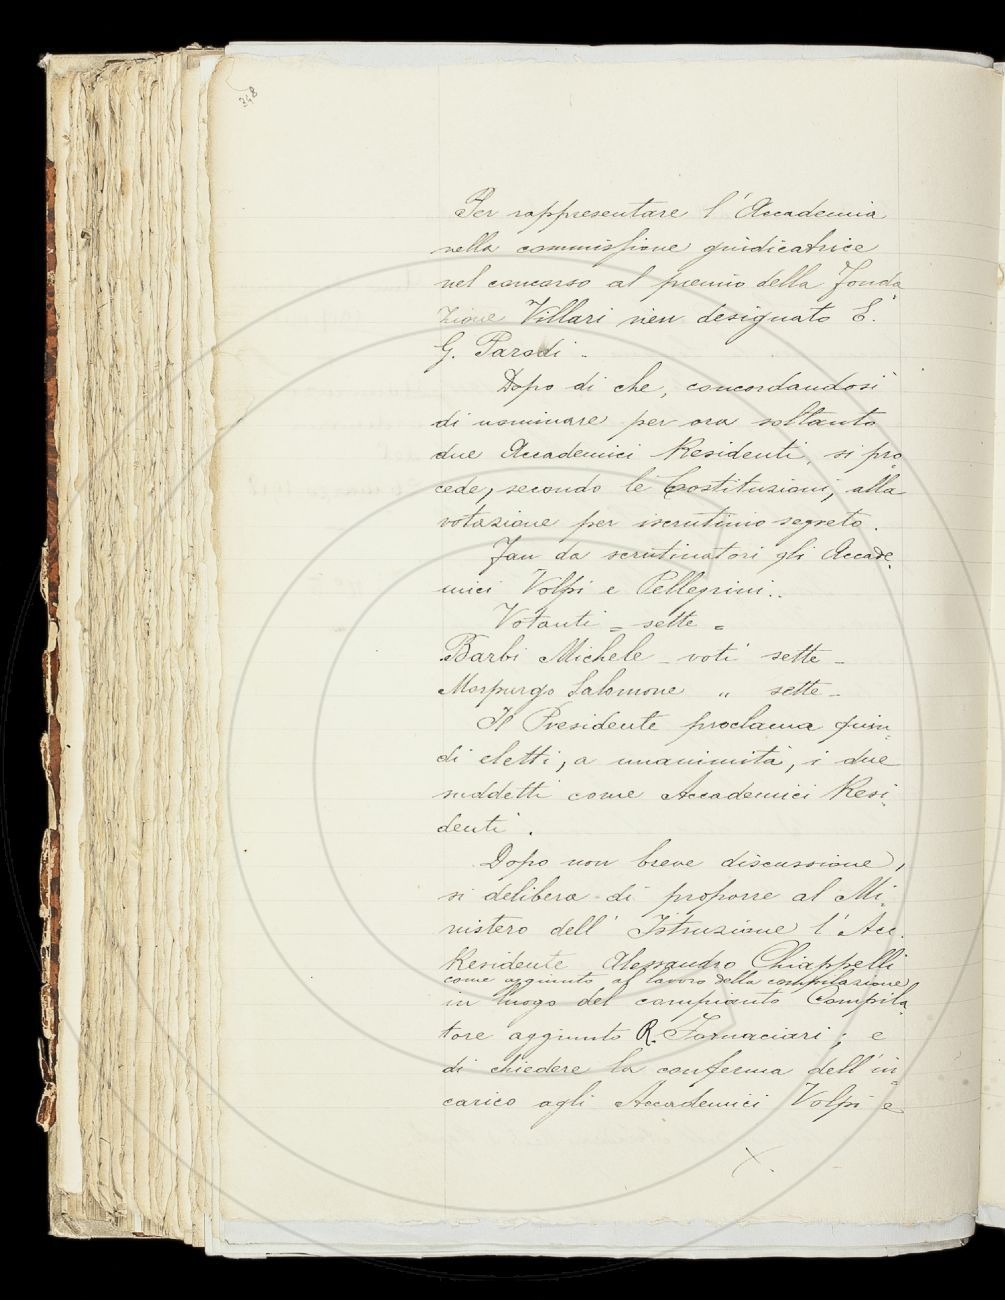 348
Per rappresentare l'Accademia
nella commissione giudicatrice
nel concorso al premio della Fonda
zione Villari vien designato E.
G. Parodi.
Dopo di che, concordandosi
di nominare per ora soltanto
due Accademici Residenti, si pro
cede, secondo le Costituzioni, alla
votazione per iscrutinio segreto.
Fan da scrutinatori gli Accade-
mici Volpi e Pellegrini..
Votanti = sette =
Barbi Michele - voti sette -
Morpurgo Salomone " sette -
Il Presidente proclama quin-
di eletti, a unanimità, i due
suddetti come Accademici Resi-
denti.
Dopo non breve discussione,
si delibera di proporre al Mi-
nistero dell'Istruzione l'Acc.
Residente Alessandro Chiappelli
come aggiunto al lavoro della compilazione
in luogo del compianto Compila-
tore aggiunto R. Fornaciari; e
di chiedere la conferma dell'in-
carico agli Accademici Volpi e
X.